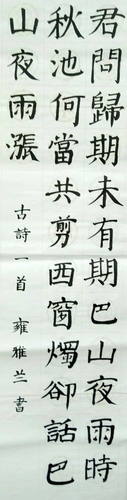 君問歸期未有期巴山夜雨時
秋池何當共剪西窗燭卻話巴
山夜雨漲
古詩一首 雍雅兰書